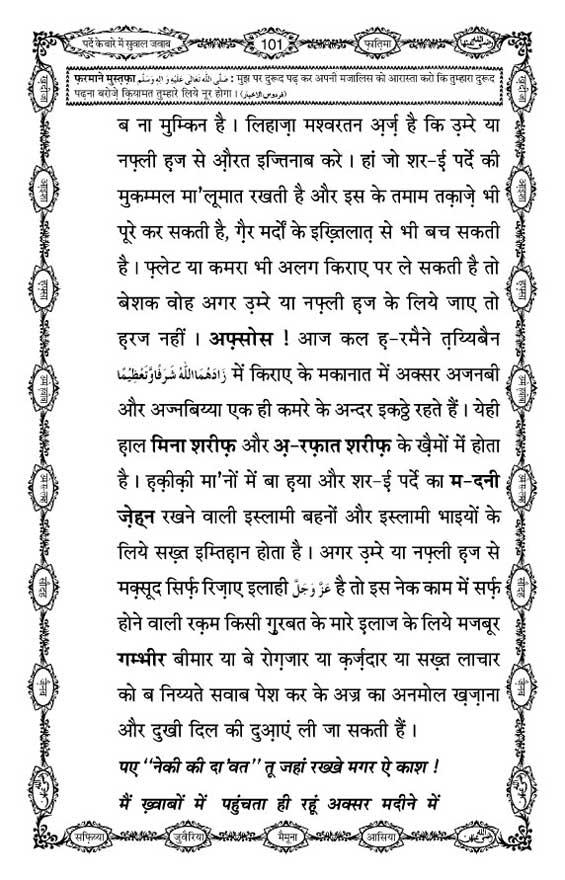 पर्दे के बारे में सुवाल जवाब
101
फ़ातिमा
फ़रमाने मुस्तफ़ा صَلَّى اللّٰهُ تَعَالٰى عَلَيْهِ وَاٰلِهٖ وَسَلَّم : मुझ पर दुरूद पढ़ कर अपनी मजालिस को आरास्ता करो कि तुम्हारा दुरूद
पढ़ना बरोज़े क़ियामत तुम्हारे लिये नूर होगा । (فردوس الاخبار)
ब ना मुम्किन है । लिहाज़ा मश्वरतन अ़र्ज़ है कि उ़म्रे या
नफ़्ली ह़ज से औ़रत इज्तिनाब करे । हां जो शर-ई़ पर्दे की
मुकम्मल मा'लूमात रखती है और इस के तमाम तक़ाज़े भी
पूरे कर सकती है, ग़ैर मर्दों के इख़्तिलात़ से भी बच सकती
है । फ़्लेट या कमरा भी अलग किराए पर ले सकती है तो
बेशक वोह अगर उ़म्रे या नफ़्ली ह़ज के लिये जाए तो
ह़रज नहीं । अफ़्सोस ! आज कल ह़-रमैने त़य्यिबैन
زَادَهُمَااللّٰهُ شَرَفًاوَّتَعْظِيْمًا में किराए के मकानात में अक्सर अजनबी
और अज्नबिय्या एक ही कमरे के अन्दर इकठ्ठे रहते हैं । येही
ह़ाल मिना शरीफ़ और अ़-रफ़ात शरीफ़ के ख़ैमों में होता
है । ह़क़ीक़ी मा'नों में बा ह़या और शर-ई़ पर्दे का म-दनी
ज़ेह्न रखने वाली इस्लामी बहनों और इस्लामी भाइयों के
लिये सख़्त इम्तिह़ान होता है । अगर उ़म्रे या नफ़्ली ह़ज से
मक़्सूद सिर्फ़ रिज़ाए इलाही عَزَّ وَجَلَّ है तो इस नेक काम में सर्फ़
होने वाली रक़म किसी ग़ुरबत के मारे इ़लाज के लिये मजबूर
गम्भीर बीमार या बे रोज़गार या क़र्ज़दार या सख़्त लाचार
को ब निय्यते सवाब पेश कर के अज्र का अनमोल ख़ज़ाना
और दुखी दिल की दुआ़एं ली जा सकती हैं ।
पए ‘‘नेकी की दा'वत’’ तू जहां रख्खे मगर ऐ काश !
मैं ख़्वाबों में पहुंचता ही रहूं अक्सर मदीने में
सफ़िय्या
जुवैरिया
मैमूना
आसिया